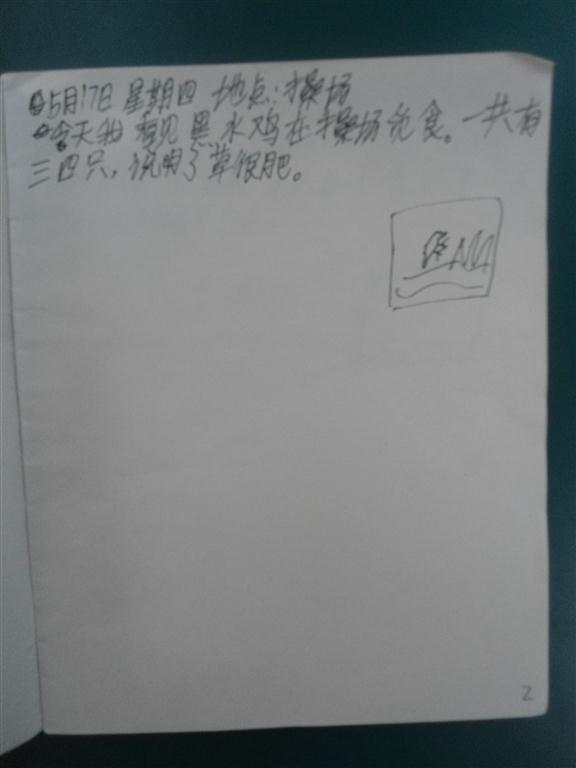 5月17日 星期四 地点:操场
今天我看见黑水鸡在操场觅食。一共有
三四只,说明了草很肥。
2